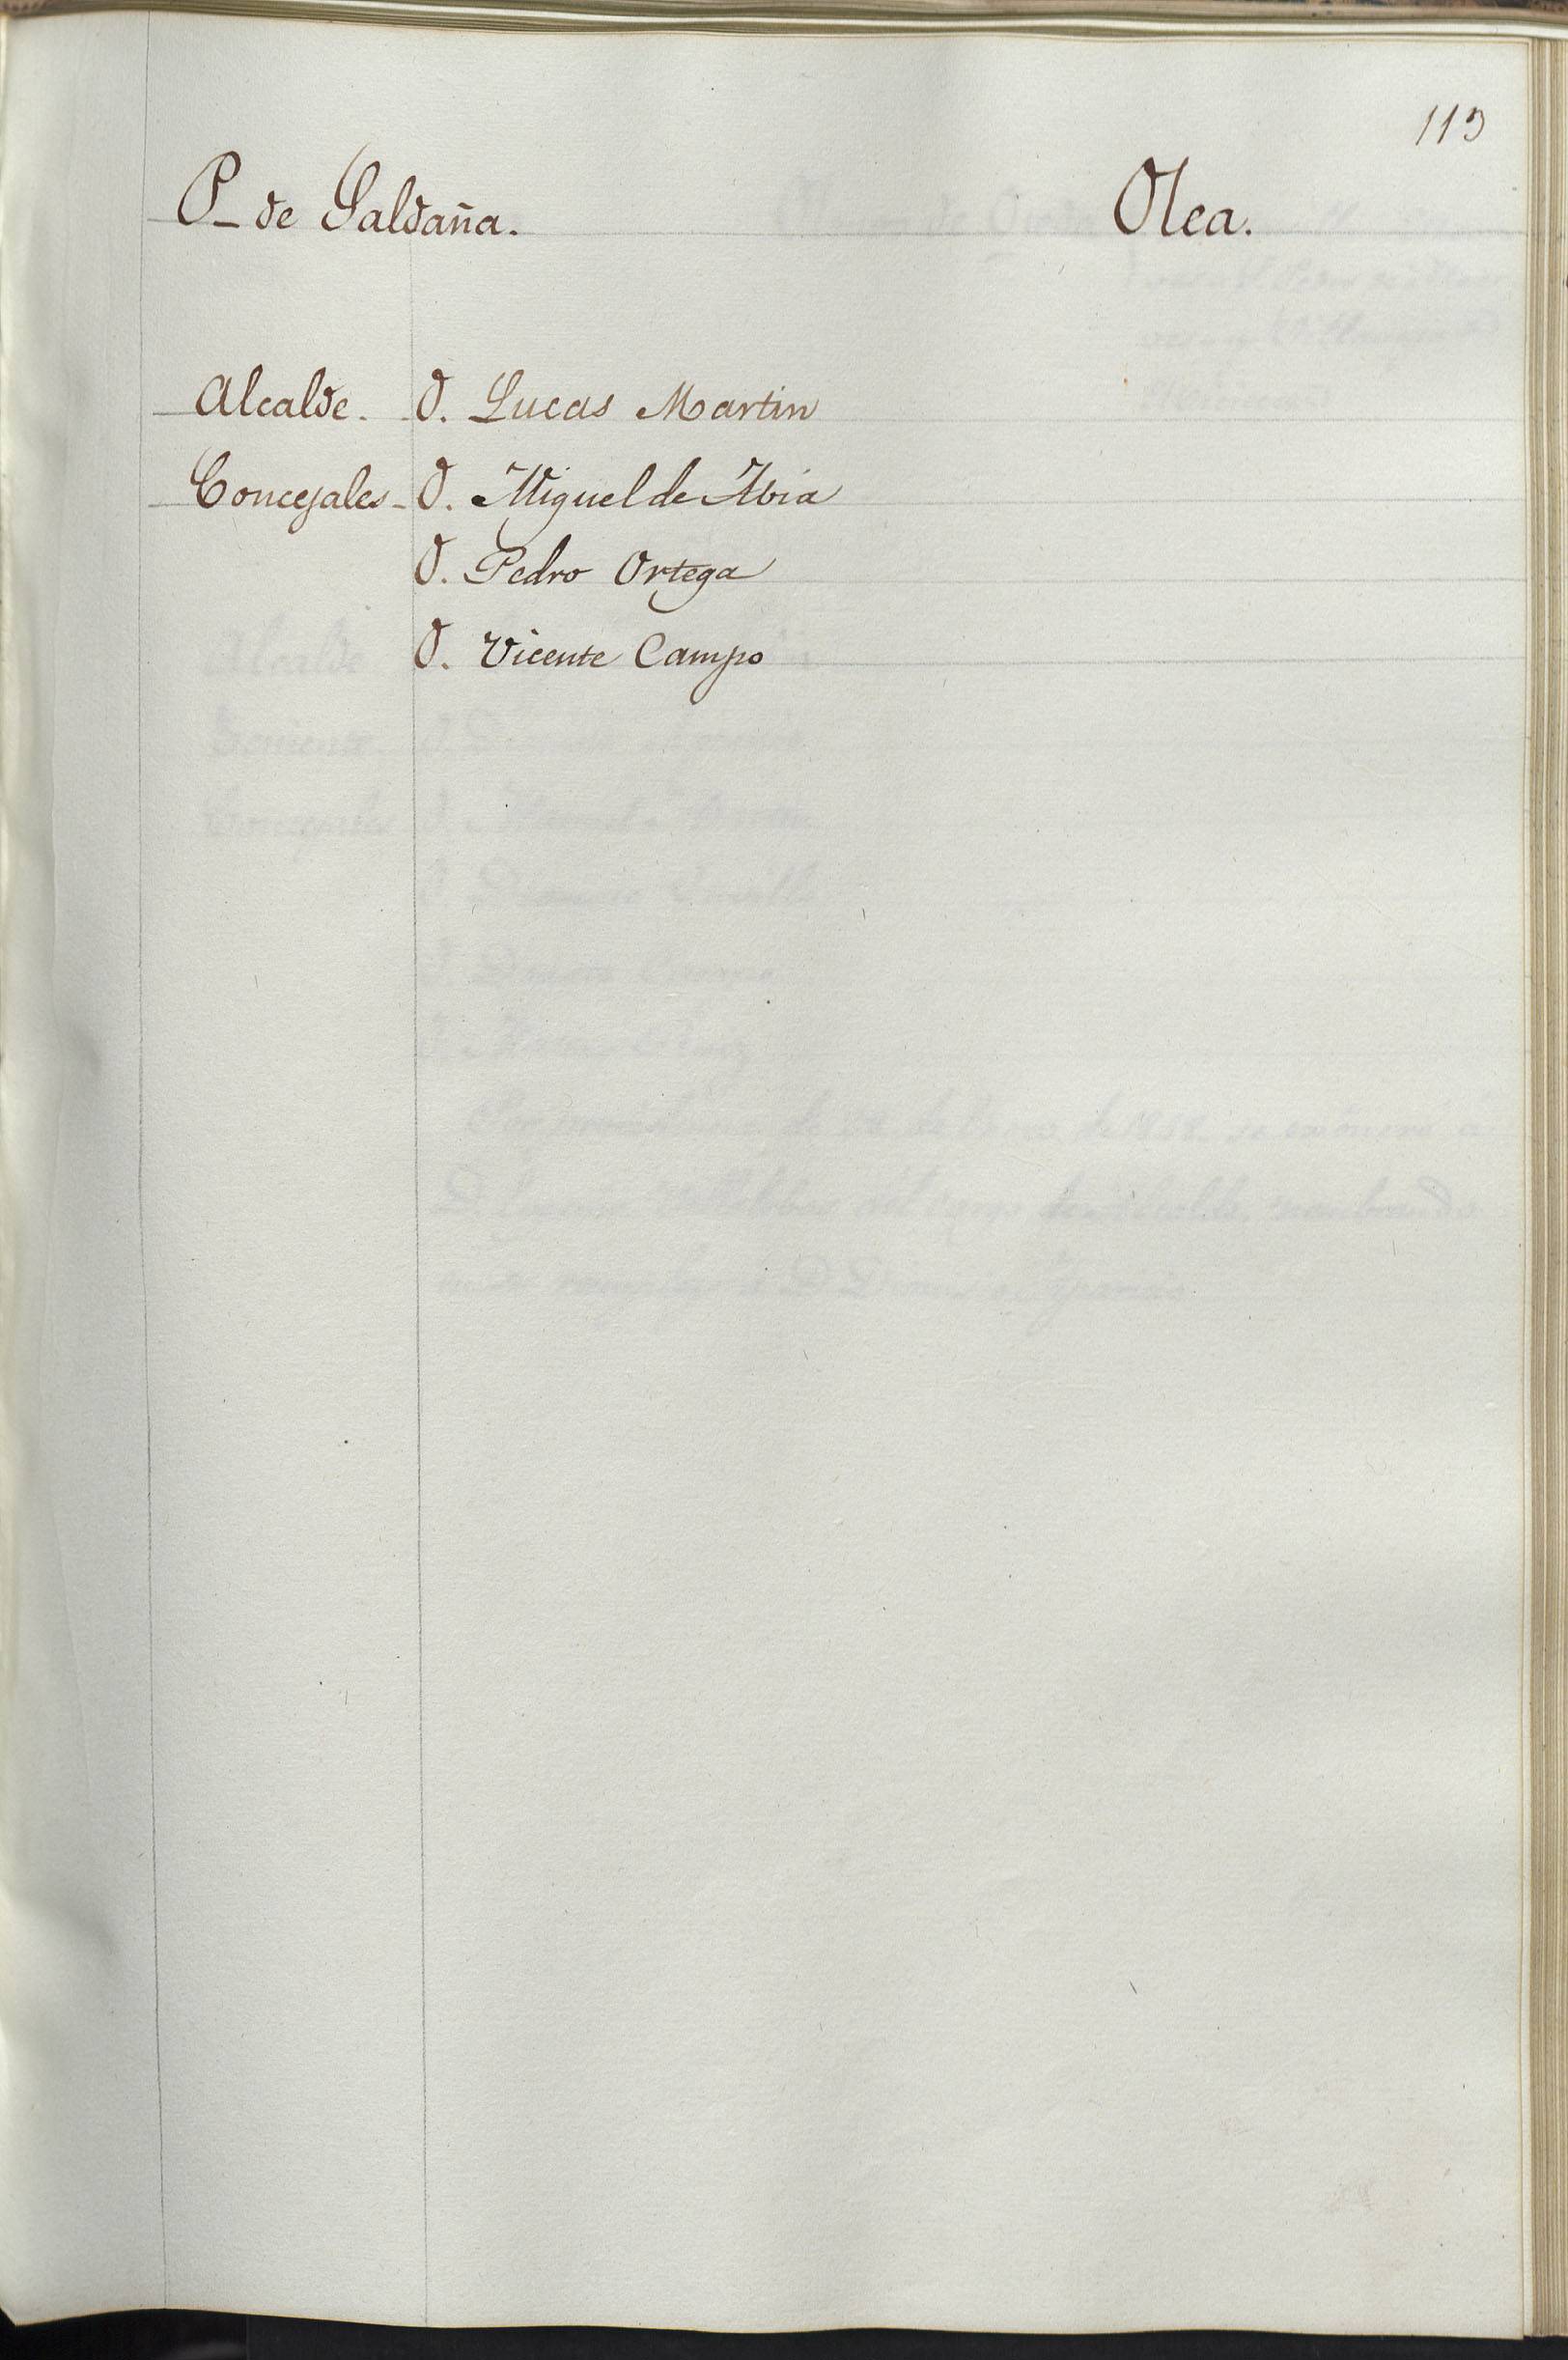 113
P. de Saldaña. Olea.
Alcalde. D. Lucas Martin
Concejales - D. Miguel de Abia
D. Pedro Ortega
D. Vicente Campo